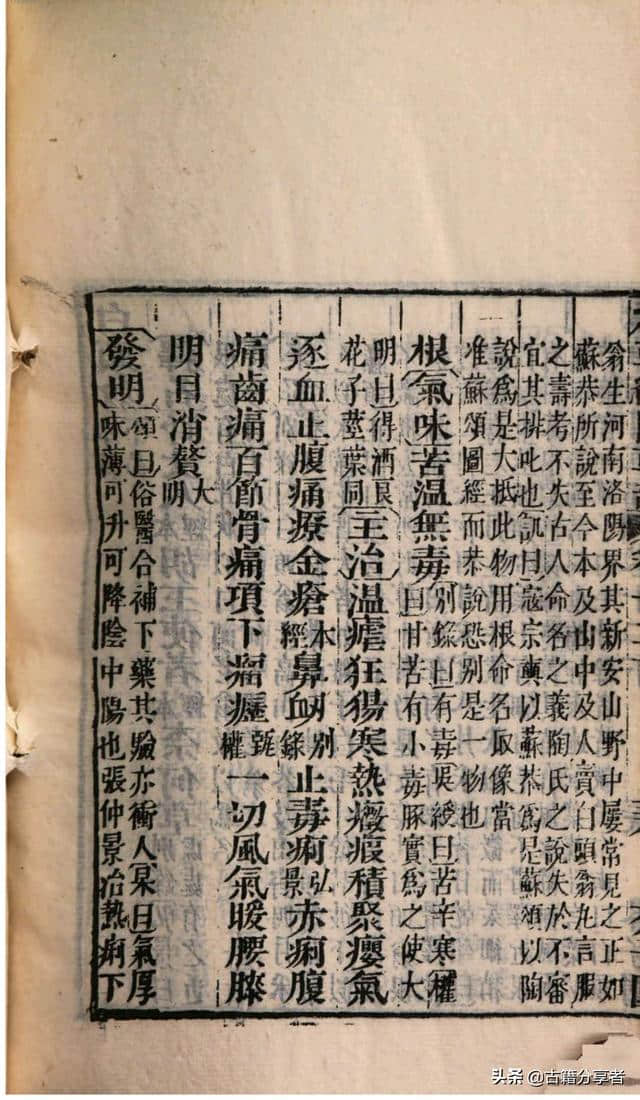 翁生河南洛陽界其新安山野中屢常見之正如
蘇恭所說至今本及山中及人賣白頭翁丸言服
之壽考不失古人命名之義陶氏之說失於不審
宜其排叱也訊曰宼宗奭以蘇恭爲是蘇頌以陶
說爲是大抵此物用根命名取像當
准蘇頌圖經而恭說恐别是一物也
根氣味苦温無毒别錄曰有毒吳綬曰苦辛寒權曰甘苦有小毒豚實爲之使大
明曰得酒良花子莖葉同主治温瘧狂猲寒熱癥瘕積聚癭氣
逐血止腹痛療金瘡本經鼻衂别錄止毒痢弘景赤痢腹
痛齒痛百節骨痛項下瘤癧甄權一切風氣暖腰膝
明目消贅大明
發明頌曰俗醫合補下藥其驗亦衝人杲曰氣厚味薄可升可降陰中陽也張仲景治熱痢下
头条 @古籍分享者